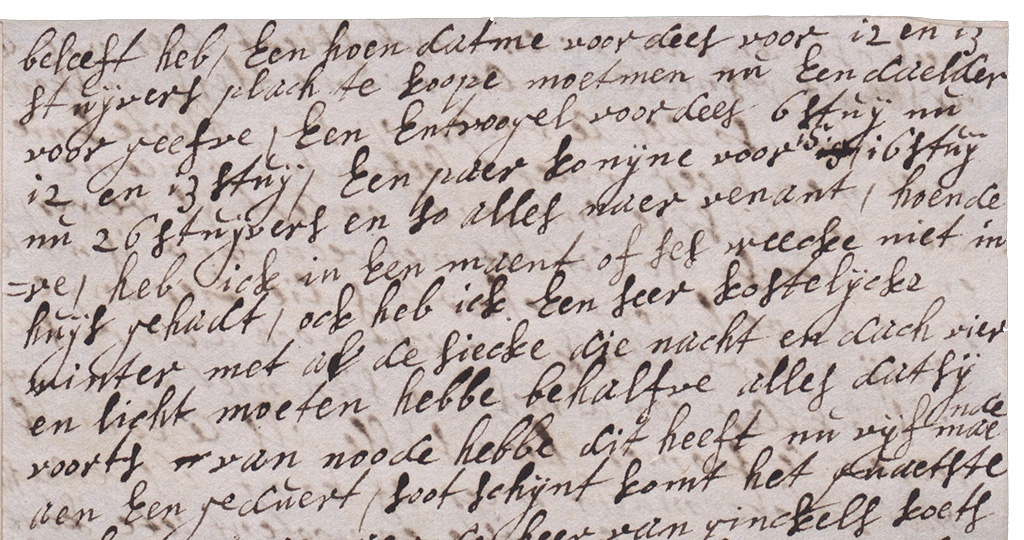 beleeft heb / Een hoen datme voor dees voor 12 en 13
stuijvers plach te koope moetmen nu Een daelder
voor geefve / Een Entvoogel voor dees 6 stuij nu
12 en 13 stuij / Een paer konijne voor 16 stuij
nu 26 stuijvers en so alles naer venant / hoende
=re / heb ick in Een maent of ses weecke niet in
huijs gehadt / ock heb ick Een seer kostelijcke
winter met al de siecke die nacht en dach vier
en licht moeten hebbe behalfve alles datsij
voorts van noode hebbe dit heeft nu vijf maende
aen Een geduert / soot schijnt komt het quaetste
heer van ginckels koets